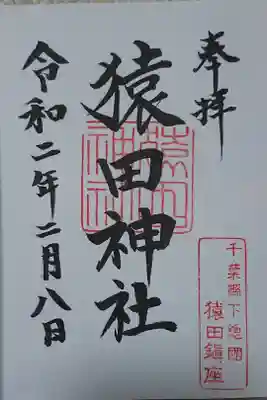 奉拝
猿田神社
猿田神社
千葉縣下總國
猿田鎮座
令和二年二月八日